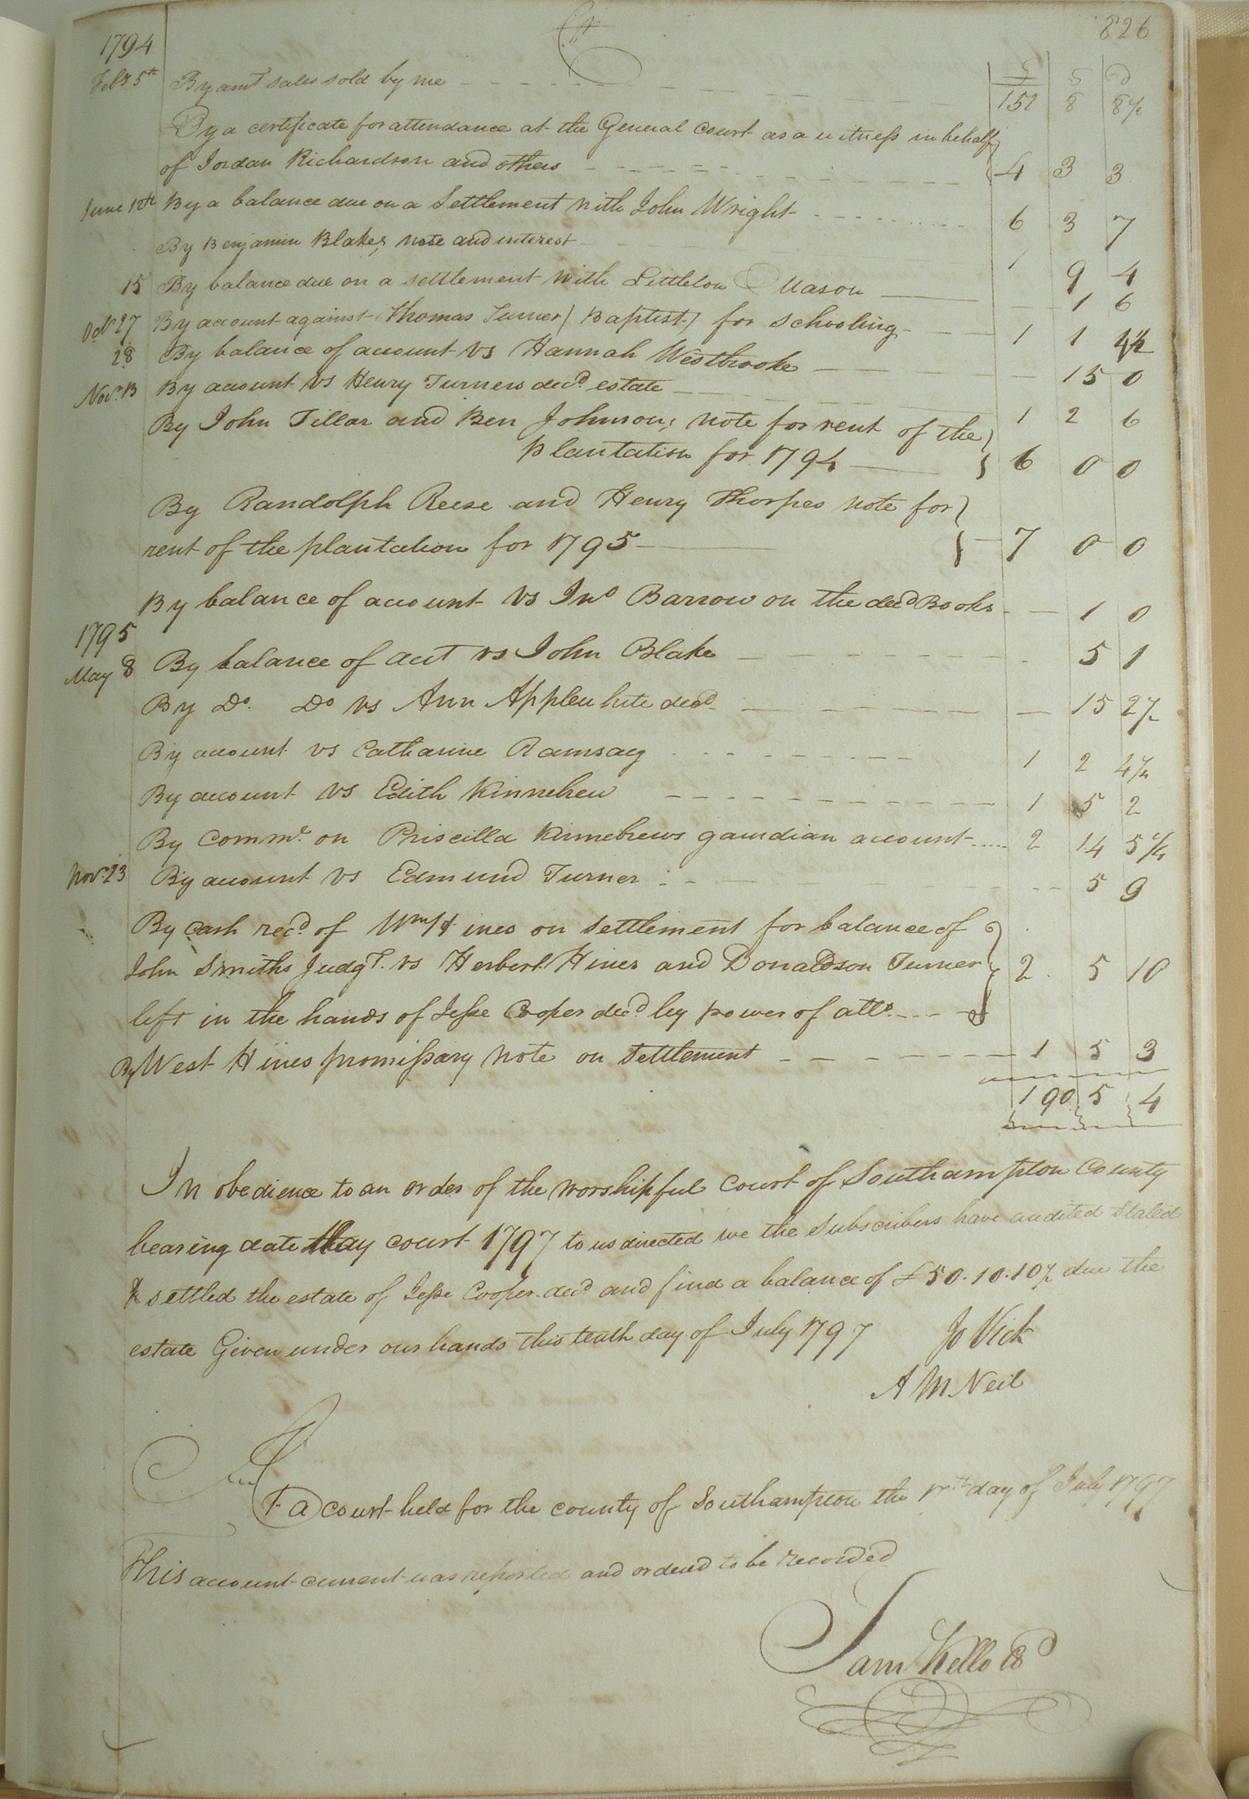 Cr 826
1794 £ S D
Feby 5th By amt sales sold by me 152 8 8½
By a certificate for attendance at the General Court as a witness in behalf
of Jordan Richardson and others 4 3 3
June 12th By a balance due on a Settlement with John Wright 6 3 7
By Benjamin Blakes note and interest 1 9 4
15 By balance due on a settlement with Littleton Mason 1 6
Octr 27 By account against Thomas Turner (Baptist) for schooling 1 1 4½
28 By balance of account vs Hannah Westbrooke 15 0
Novr 13 By account vs Henry Turners decd estate 1 2 6
By John Tillar and Ben Johnsons note for rent of the
plantation for 1794 6 0 0
By Randolph Reese and Henry Thorpes note for
rent of the plantation for 1795 7 0 0
By balance of account vs Jno Barrow on the decd Books 1 0
1795
May 8 By balance of acct vs John Blake 5 1
By Do. Do vs Ann Applewhite decd 15 2½
By account vs Catharine Ramsay 1 2 4¾
By account vs Edith Kinnebrew 1 5 2
By Comms. on Priscilla Kinnebrews gaurdian account 2 14 5¼
Novr 23 By account vs Edmund Turner 5 9
By cash recd of Wm Hines on settlement for balance of
John Smiths Judgt. vs Herbert Hines and Donaldson Turner 2 5 10
left in the hands of Jesse Cooper decd by power of atto.
By West Hines promissary note on settlement 1 5 3
190 5 4
In obedience to an order of the worshipful court of Southampton County
bearing date May court 1797 to us directed we the Subscribers have audited Stated
& settled the estate of Jesse Cooper decd and find a balance of £50.10.10½ due the
estate Given under our hands this tenth day of July 1797 Jo Vick
A McNeil
At a court held for the county of Southampton the day of July 1797
This account current was reported and ordered to be recorded
Sam Kello CCd